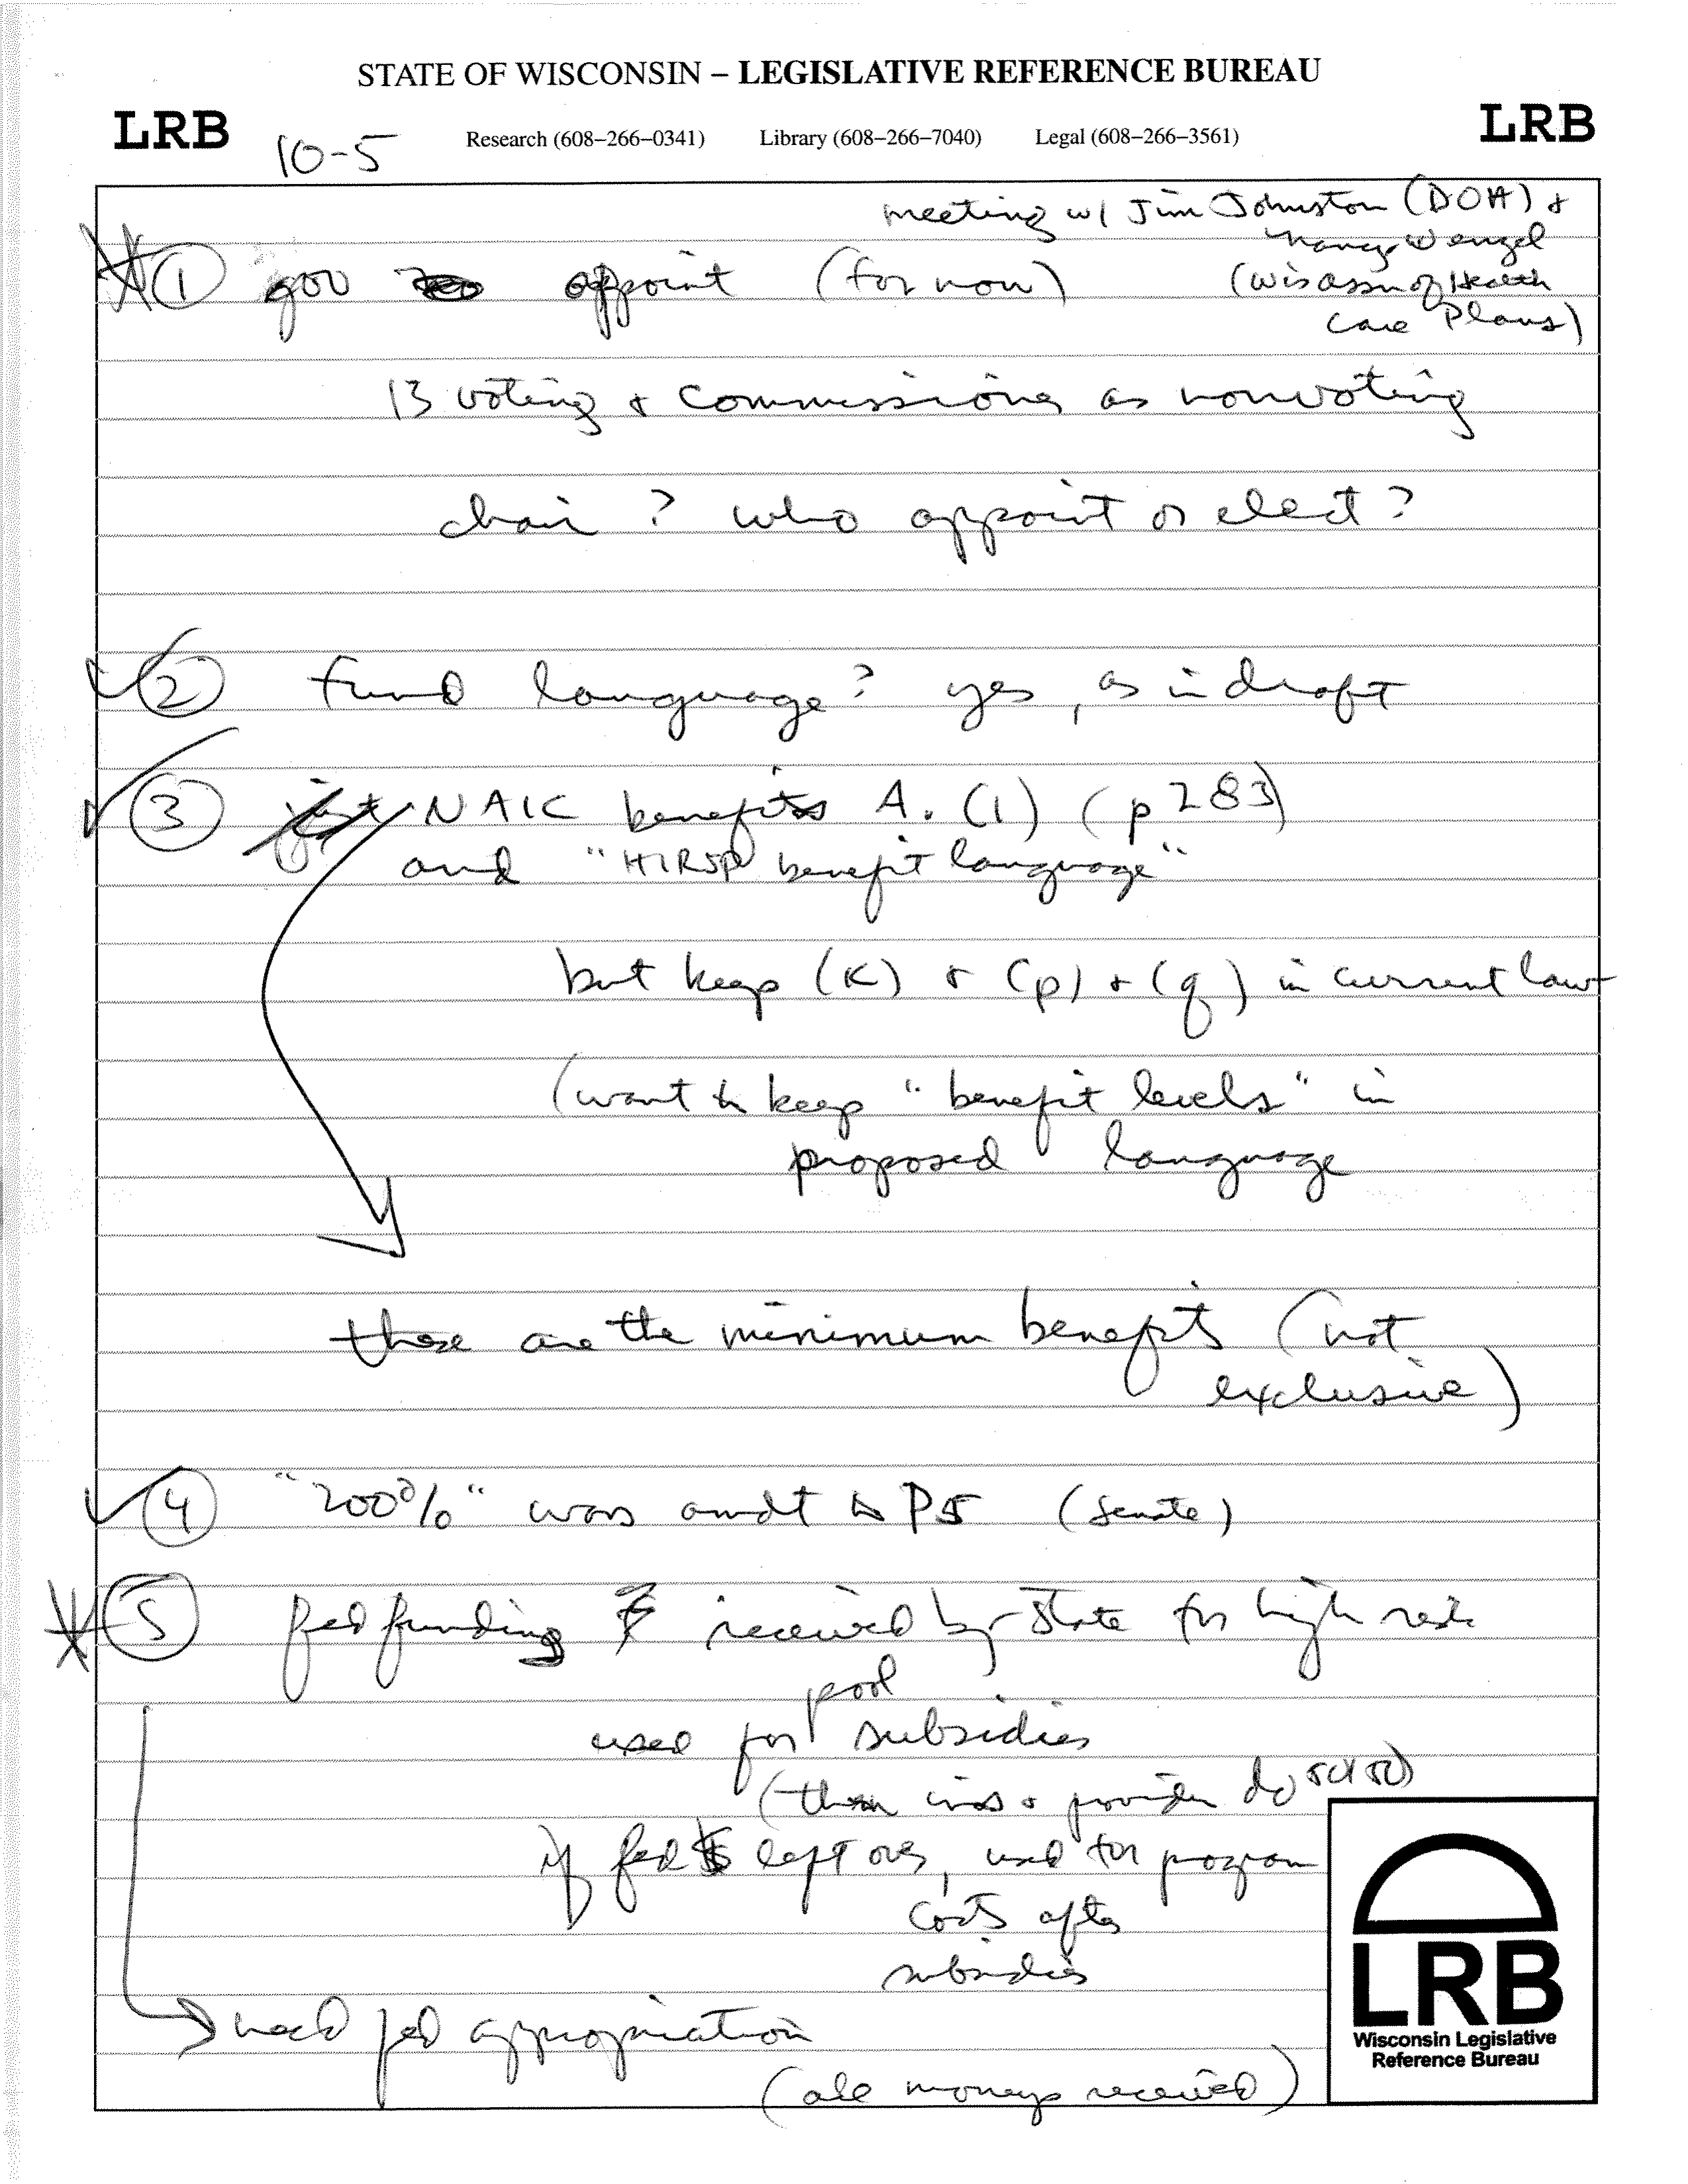 STATE OF WISCONSIN – LEGISLATIVE REFERENCE BUREAU
LRB 10-5 Research (608–266–0341) Library (608–266–7040) Legal (608–266–3561) LRB
meeting w/ Jim Johnston (DOA) &
Nancy Wenzel
(Wis assn of Health
Care Plans)
① gov appoint (for now)
13 voting & commissioner as nonvoting
chair? who appoint or elect?
② fund language? yes, as in draft
③ just NAIC benefits A. (1) (p 283)
and "HIRSP benefit language"
but keep (K) & (p) & (q) in current law
(want to keep "benefit levels" in
proposed language
these are the minimum benefits (not
exclusive)
④ "200%" was amdt to P5 (Senate)
⑤ fed funding received by State for high risk
pool
used for subsidies
(then ins & provider do 50/50)
if fed $ left over, used for program
costs after
subsidies
need fed appropriation
(all moneys received)
LRB
Wisconsin Legislative
Reference Bureau